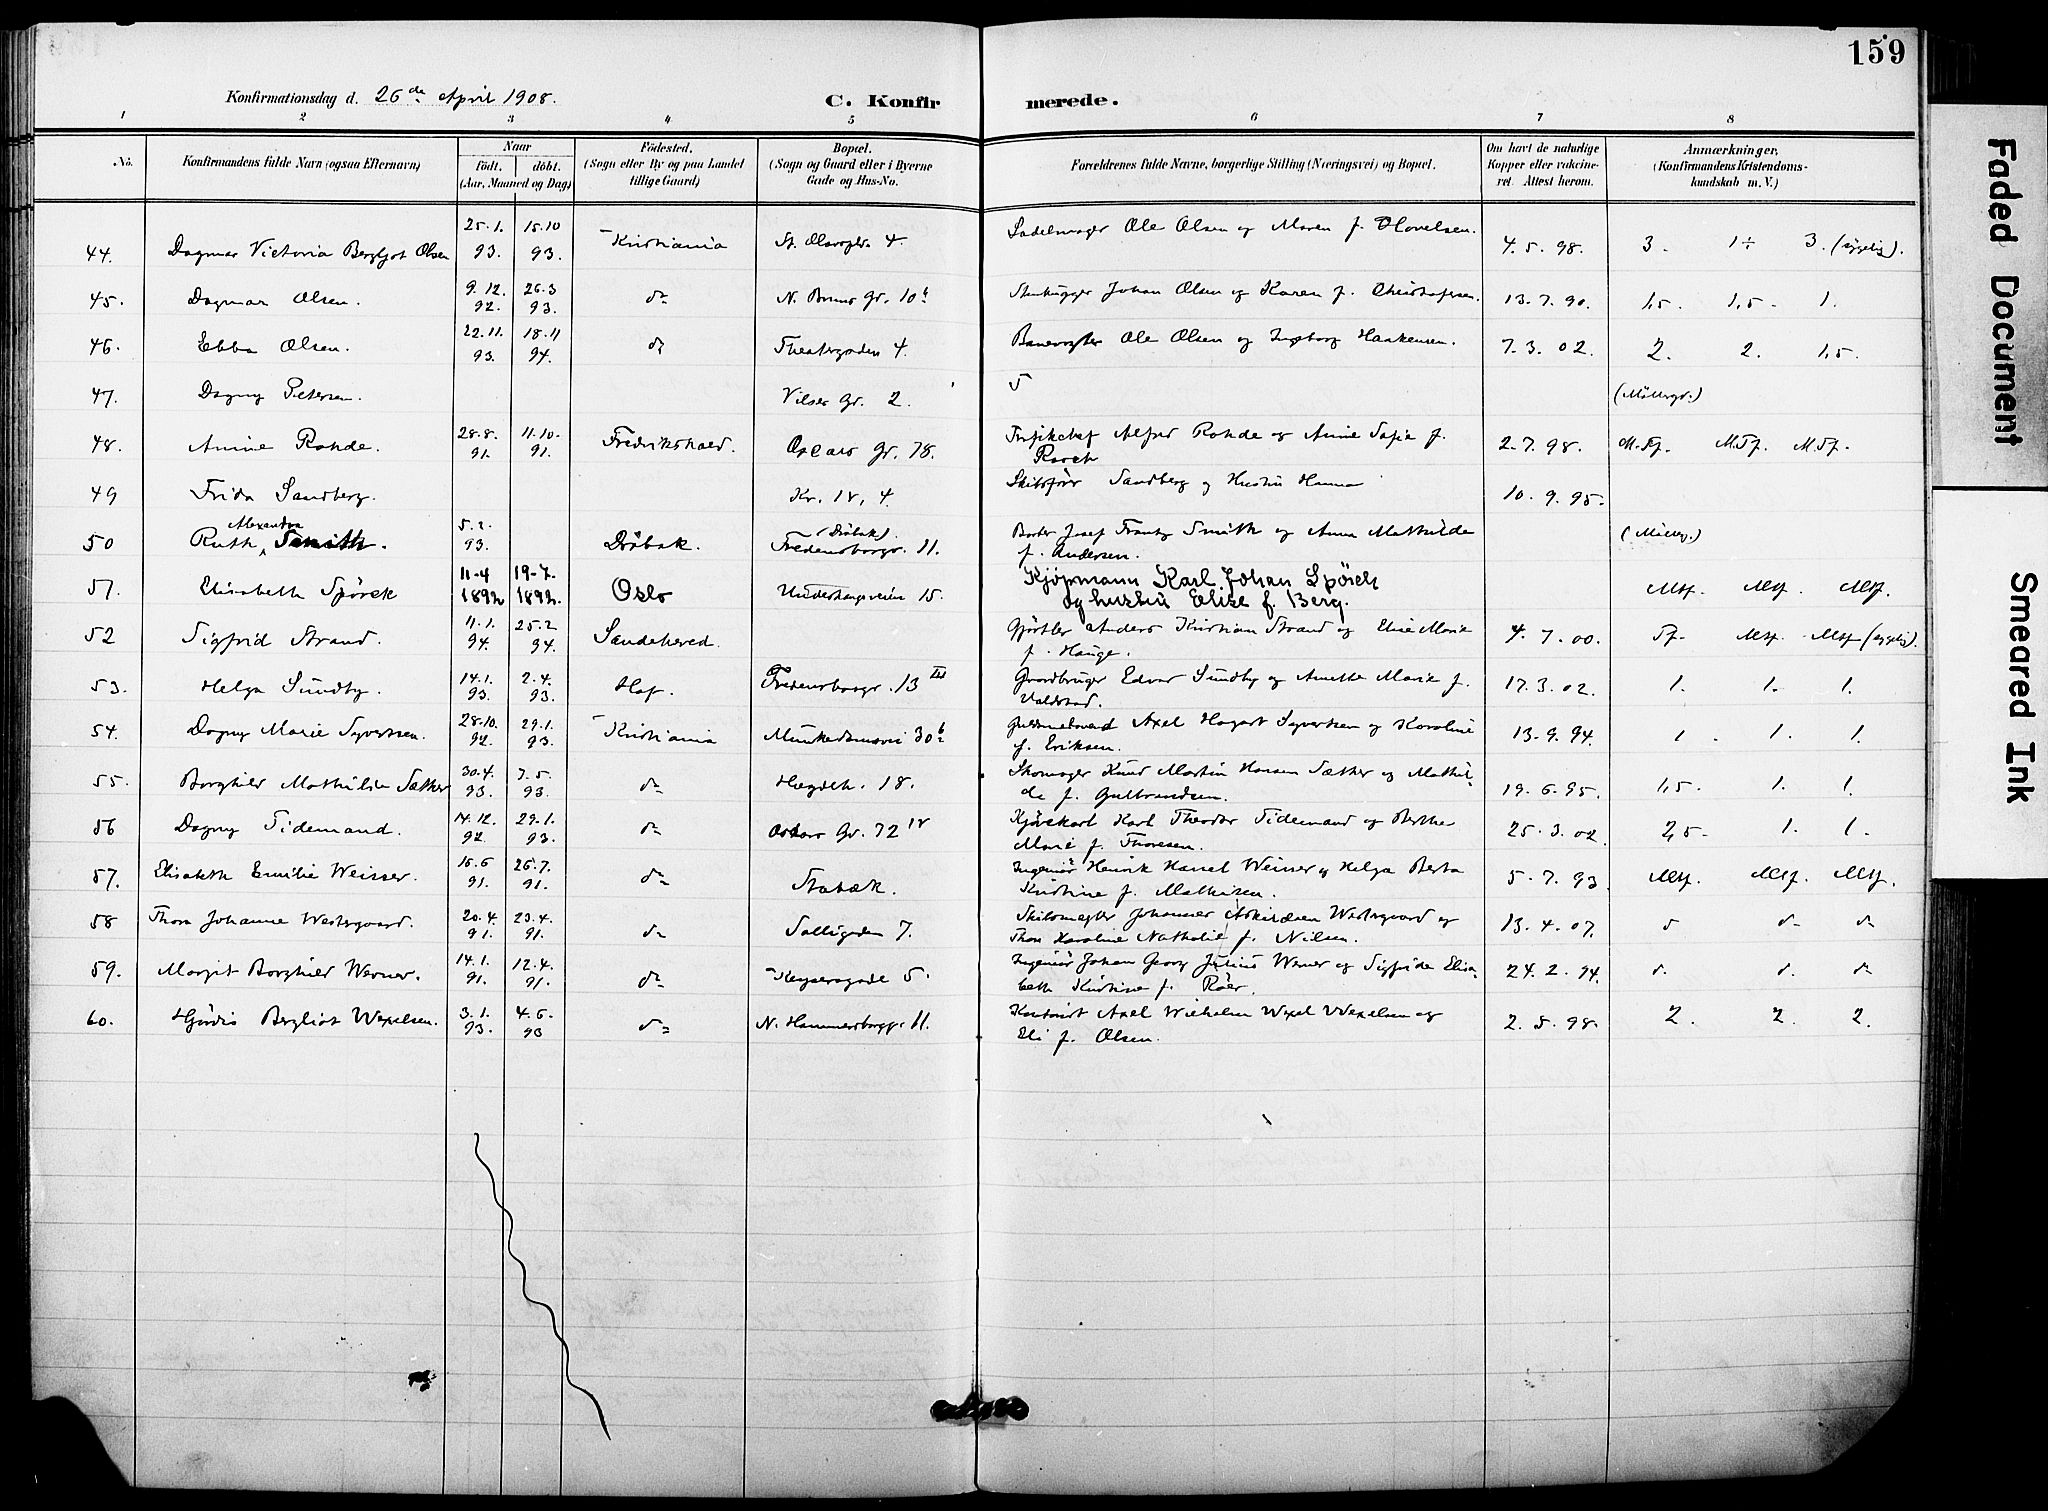 159
Konfirmationsdag d. 26de April 1908.
C. Konfirmerede.
1 2 3 4 5 6 7 8
No.
Konfirmandens fulde Navn (ogsaa Efternavn)
Naar
født. døbt.
(Aar, Maaned og Dag)
Fødested.
(Sogn eller By og paa Landet
tillige Gaard)
Bopæl.
(Sogn og Gaard eller i Byerne
Gade og Hus-No.
Forældrenes fulde Navne, borgerlige Stilling (Næringsvei) og Bopæl.
Om havt de naturlige
Kopper eller vakcine-
ret. Attest herom.
Anmærkninger,
(Konfirmandens Kristendoms-
kundskab m. V.)
44. Dagmar Victoria Bergljot Olsen 25.1. 93. 15.10 93. Kristiania St. Olavspl. 4. Sadelmager Ole Olsen og Maren f. Hovelsen. 4.5.98. 3. 1÷ 3. (sygelig).
45. Dagmar Olsen. 9.12. 92. 26.3 93. do N. Bruns Gr. 10b Stenhugger Johan Olsen og Karen f. Christofersen. 13.7.90. 1,5. 1,5. 1.
46. Ebba Olsen. 22.11. 93. 18.11 94. do Theatergaden 4. Banevogter Ole Olsen og Ingeborg Haakensen. 7.3.02. 2. 2. 1,5.
47. Dagny Petersen. Vilses Gr. 2. (Møllergr.)
48. Anine Rohde. 28.8. 91. 11.10. 91. Fredrikshald. Oscars Gr. 78. Alfred Rohde og Anine Sofie f. 2.7.98. M.Tf. M.Tf. M.Tf.
49 Frida Sandberg. Kr. 1v, 4. Skibsfører Sandberg og Hustru Hanna 10.9.95.
50 Ruth Alexandra Smith. 5.2. 93. Drøbak. (Drøbak) Fredensborgv. 11. Josef Frantz Smith og Anna Mathilde
f. Andersen. (Møllerg.)
51. Elisabeth Spørck 11-4 1892 19-7. 1892. Oslo Underhaugsveien 15. Kjøpmann Karl Johan Spörch
og hustru Elise f. Berg. Mtf. Mtf. Mtf.
52 Sigfrid Strand. 11.1. 94. 25.2 94. Sandehered. Gjørtler Anders Kristian Strand og Elise Marie
f. Hauge. 4.7.00. Tf. Mtf. Mtf (sygelig).
53. Helga Sundby. 14.1. 93. 2.4. 93. Hof. Fredensborgv. 13 III Gaardbruger Edvar Sundby og Anette Marie f.
17.3.02. 1. 1. 1.
54. Dagny Marie Syvertsen. 28.10. 92. 29.1. 93. Kristiania Munkedamsvei 30b Axel Hagart Syvertsen og Karoline
f. Eriksen. 13.9.94. 1. 1. 1.
55. Borghild Mathilde Sæther 30.4. 93. 7.5. 93. do Hægdeh. 18. Skomager Knud Martin Hansen Sæther og Mathil-
de f. Gulbrandsen. 19.6.95. 1,5. 1. 1.
56 Dagny Tidemand. 14.12. 92. 29.1. 93. do Oskars Gr. 72 IV Kjørekarl Karl Theodor Tidemand og Berthe
Marie f. Thoresen. 25.3.02 2,5. 1. 1.
57. Elisabeth Emilie Weisser. 16.6 91. 26.7. 91. do Stabæk. Ingeniør Henrik Hassel Weisser og Helga Berta
Kristine f. Mathisen. 5.7.93. Mtf. Mtf. Mtf.
58 Thora Johanne Westergaard. 20.4. 91. 23.4. 91. do Solligaden 7. Johannes Westergaard og
Thora Karoline Nathalie f. Nilsen. 13.4.07. do do do
59. Margit Borghild Werner. 14.1. 91. 12.4. 91. do Keysersgade 5. Ingeniør Johan Georg Julius Werner og Sigfride Elisa-
beth Kristine f. Röer. 24.2.94. do do do
60. Hjørdis Bergliot Wexelsen. 3.1. 93. 4.6. 93 do N. Hammersborgg. 11. Kontorist Axel Wilhelm Wexel Wexelsen og
Eli f. Olsen. 2.5.98. 2. 2. 2.
Faded Document
Smeared Ink